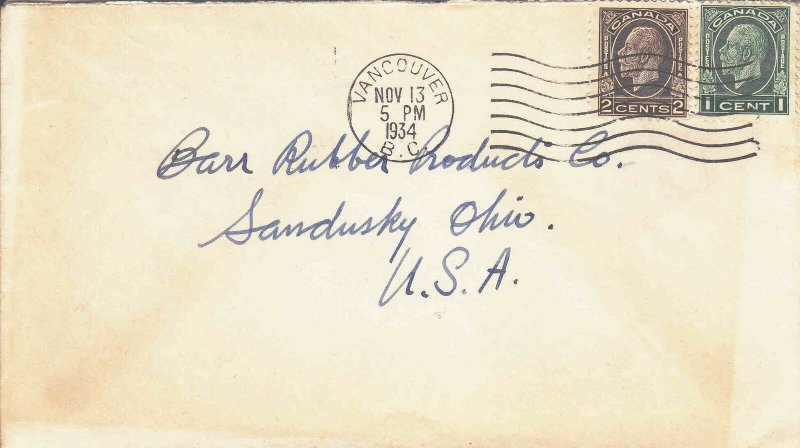 CANADA
POSTES POSTAGE
2 CENTS 2
CANADA
POSTES POSTAGE
1 CENT 1
VANCOUVER
NOV 13
5 PM
1934
B.C.
Barr Rubber Products Co.
Sandusky Ohio.
U.S.A.